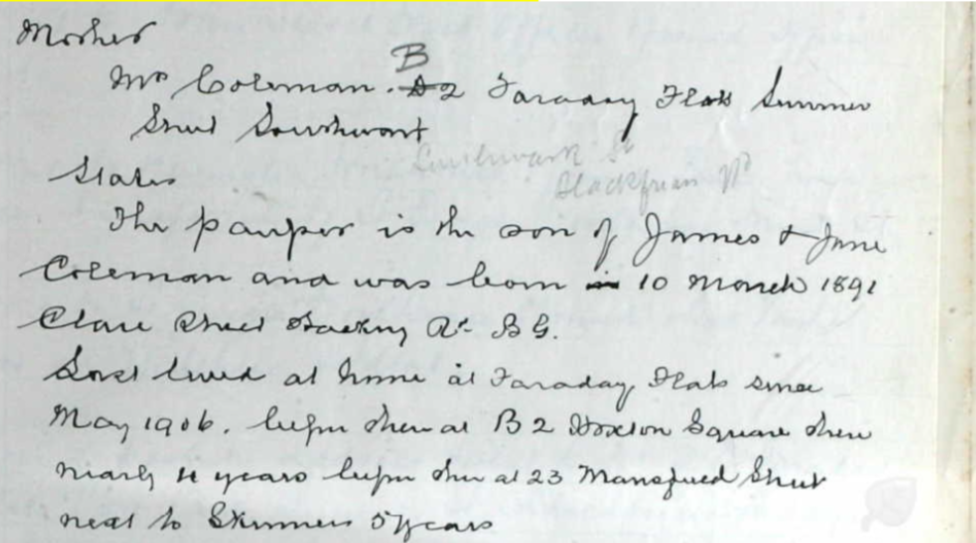 Mother
B
Mrs Coleman. A2 Faraday Flats Sumner
Street Southwark
Southwark St
Blackfriars Rd
States
The pauper is the son of James & Jane
Coleman and was born in 10 March 1891
Clare Street Hackney Rd BG.
Last lived at home at Faraday Flats since
May 1906. before then at B2 Hoxton Square there
nearly 4 years before then at 23 Mansfield Street
next to Skinners 5 years